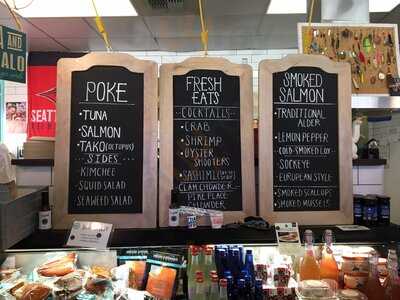 AND
SEATT
POKE
•TUNA
•SALMON
•TAKO (OCTOPUS)
SIDES
KIMCHEE
SQUID SALAD
SEAWEED SALAD
FRESH
EATS
COCKTAILS
•CRAB
•SHRIMP
•OYSTER
SHOOTERS
•SASHIMI
CLAM CHOWDER
PIKE PLACE
CHOWDER
SMOKED
SALMON
•TRADITIONAL
ALDER
•LEMON PEPPER
•COLD-SMOKED LOX
•SOCKEYE
•EUROPEAN STYLE
•SMOKED SCALLOPS
•SMOKED MUSSELS